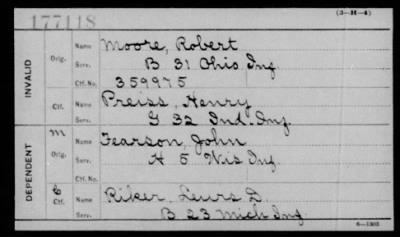 177118
(3-H-4)
INVALID
Orig.
Name Moore, Robert
Serv. B 31 Ohio Inf.
Ctf. No. 359975
Ctf.
Name Preiss, Henry
Serv. G 32 Ind. Inf.
DEPENDENT
m
Orig.
Name Fearson, John
Serv. H 5 Wis Inf
Ctf. No.
Ctf.
Name Riker, Lewis D.
Serv. B 23 Mich Inf
6-1303